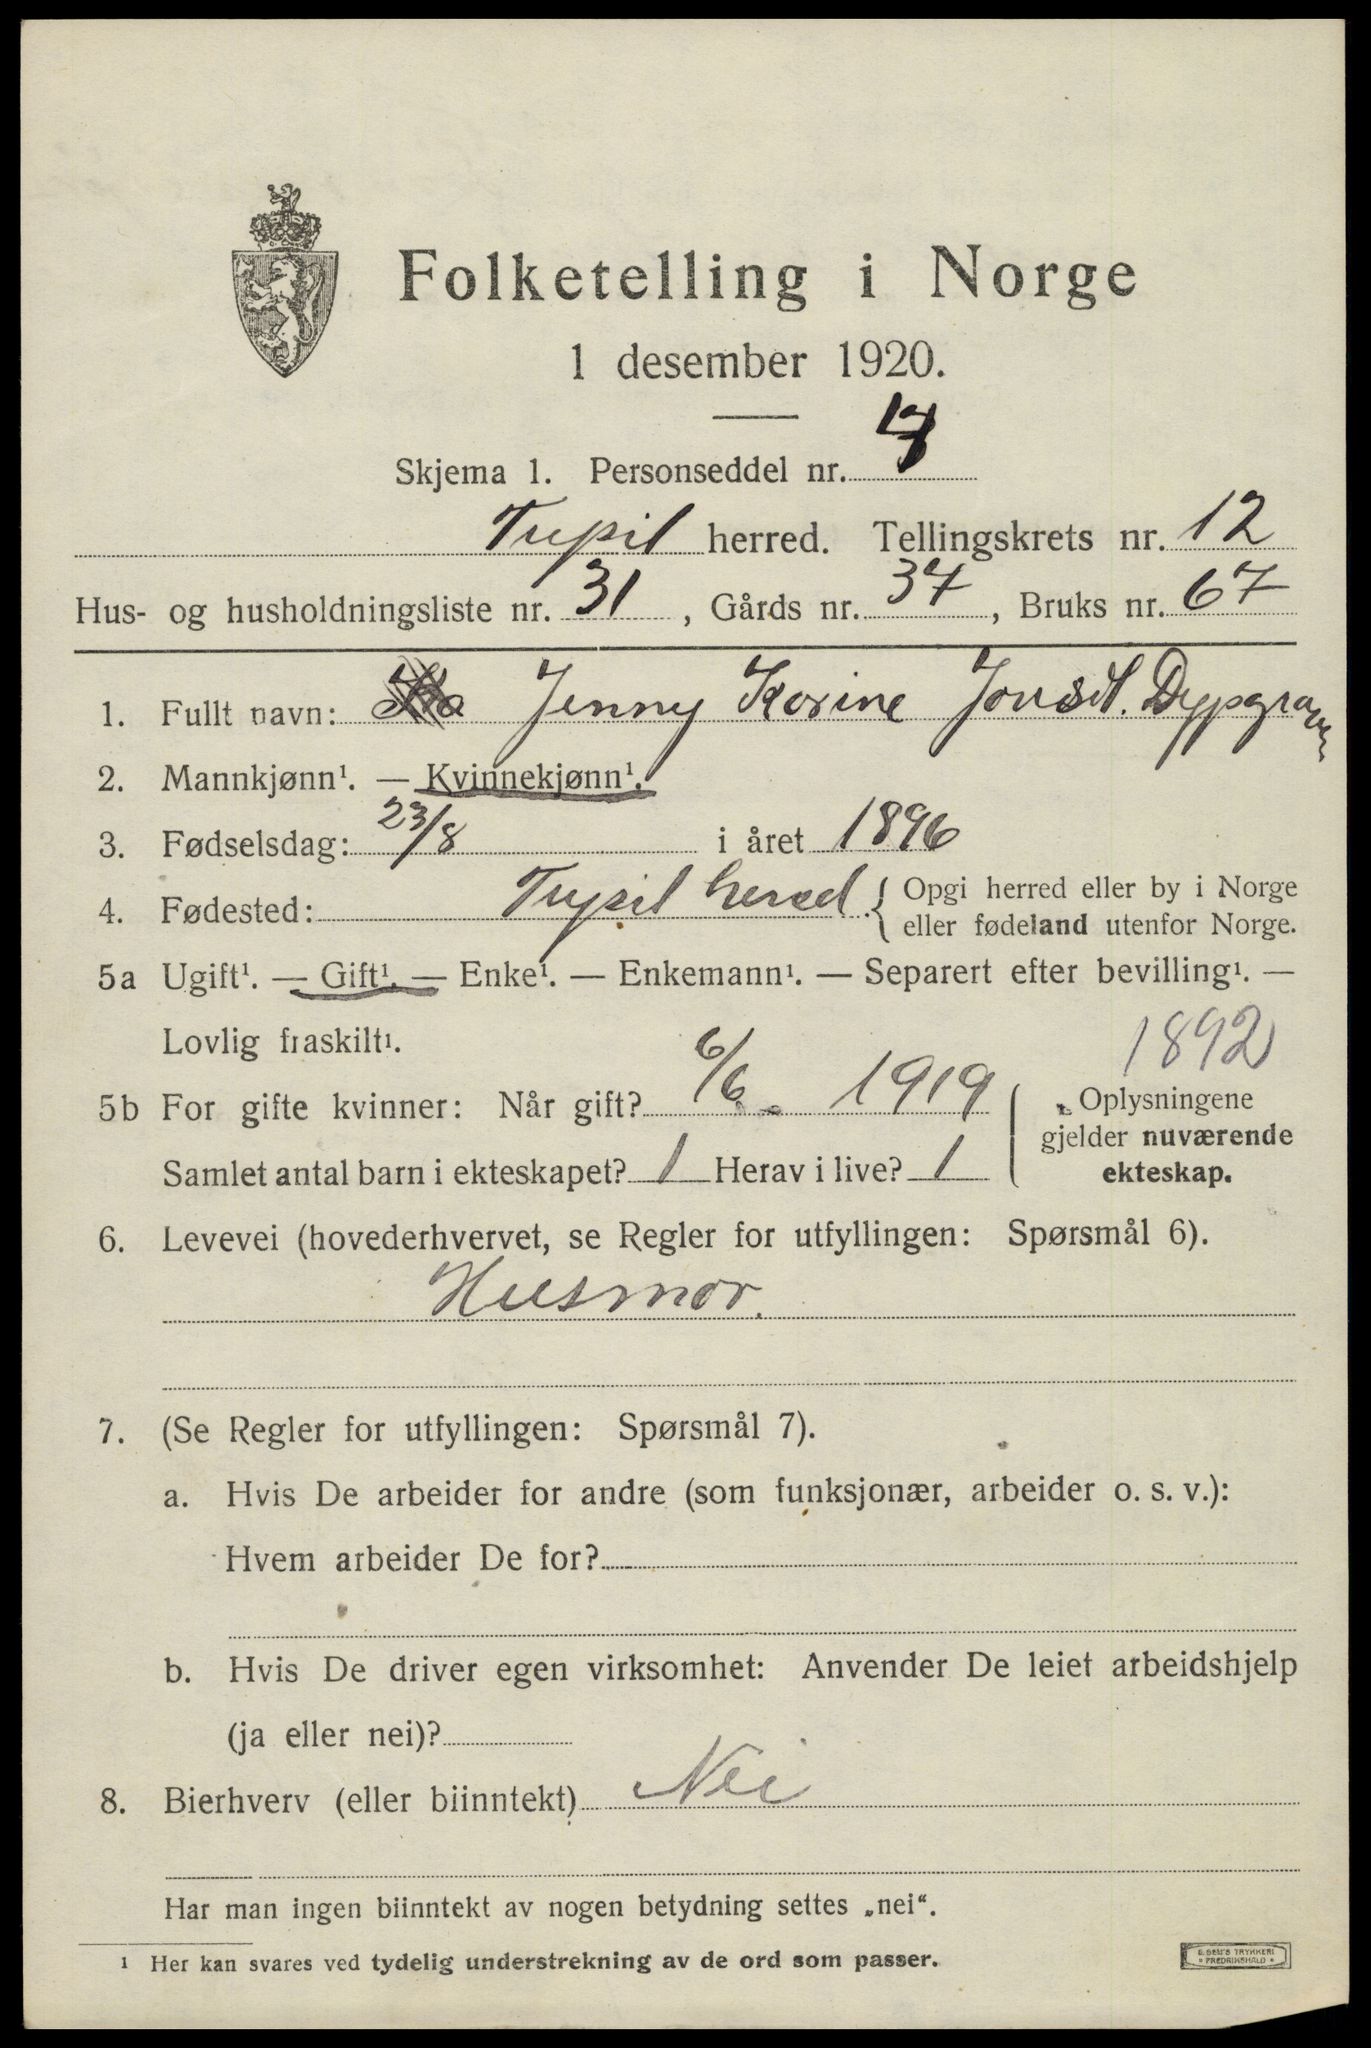 Folketelling i Norge
1 desember 1920.
Skjema 1. Personseddel nr.
Trysil herred. Tellingskrets nr. 12
Hus- og husholdningsliste nr. 31, Gårds nr. 37, Bruks nr. 67
1. Fullt navn: Jenny Korine Jonsd. Dypgraven
2. Mannkjønn¹. — Kvinnekjønn¹.
3. Fødselsdag: 23/8 i året 1896
4. Fødested: Trysil herred { Opgi herred eller by i Norge
eller fødeland utenfor Norge.
5a Ugift¹. — Gift¹. — Enke¹. — Enkemann¹. — Separert efter bevilling¹. —
Lovlig fraskilt¹.
1892
5b For gifte kvinner: Når gift? 6/6 1919
Samlet antal barn i ekteskapet? 1 Herav i live? 1
Oplysningene
gjelder nuværende
ekteskap.
6. Levevei (hovederhvervet, se Regler for utfyllingen: Spørsmål 6).
Husmor.
7. (Se Regler for utfyllingen: Spørsmål 7).
a. Hvis De arbeider for andre (som funksjonær, arbeider o. s. v.):
Hvem arbeider De for?
b. Hvis De driver egen virksomhet: Anvender De leiet arbeidshjelp
(ja eller nei)?
8. Bierhverv (eller biinntekt) Nei
Har man ingen biinntekt av nogen betydning settes „nei“.
¹ Her kan svares ved tydelig understrekning av de ord som passer.
TRYKKERI
FREDRIKSHALD